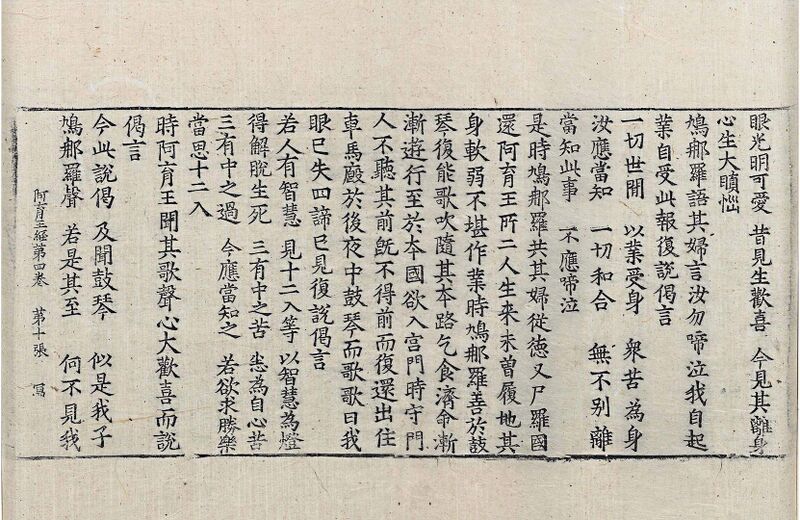 眼光明可愛 昔見生歡喜 今見其離身
心生大瞋惱
鳩那羅語其婦言汝勿啼泣我自起
業自受此報復說偈言
一切世間 以業受身 衆苦為身
汝應當知 一切和合 無不別離
當知此事 不應啼泣
是時鳩那羅共其婦從徳叉尸羅國
還阿育王所二人生來未曾履地其
身軟弱不堪作業時鳩那羅善於鼓
琴復能歌吹隨其本路乞食濟命漸
漸遊行至於本國欲入宮門時守門
人不聽其前既不得前而復還出住
車馬廄於後夜中鼓琴而歌歌曰我
眼已失四諦已見復說偈言
若人有智慧 見十二入等 以智慧為燈
得解脫生死 三有中之苦 悉為自心苦
三有中之過 今應當知之 若欲求勝樂
當思十二入
時阿育王聞其歌聲心大歡喜而說
偈言
今此說偈 及聞鼓琴 似是我子
鳩那羅聲 若是其至 何不見我
阿育王經第四卷 第十張 寫